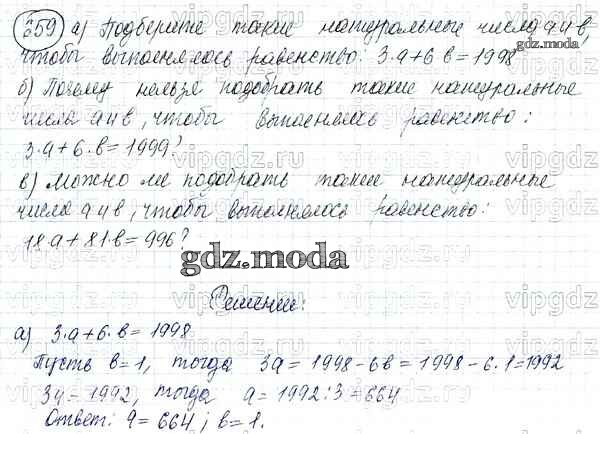 659 а) Подберите такие натуральные числа а и в,
чтобы выполнялось равенство: 3·а+6·в=1998
gdz.moda
б) Почему нельзя подобрать такие натуральные
числа а и в, чтобы выполнялось равенство:
3·а+6·в=1999?
в) Можно ли подобрать такие натуральные
числа а и в, чтобы выполнялось равенство:
18·а+81·в=996?
gdz.moda
Решение:
а) 3·а+6·в=1998
Пусть в=1, тогда 3а=1998-6в=1998-6·1=1992
3а=1992, тогда а=1992:3=664
Ответ: а=664; в=1.
vipgdz.ru